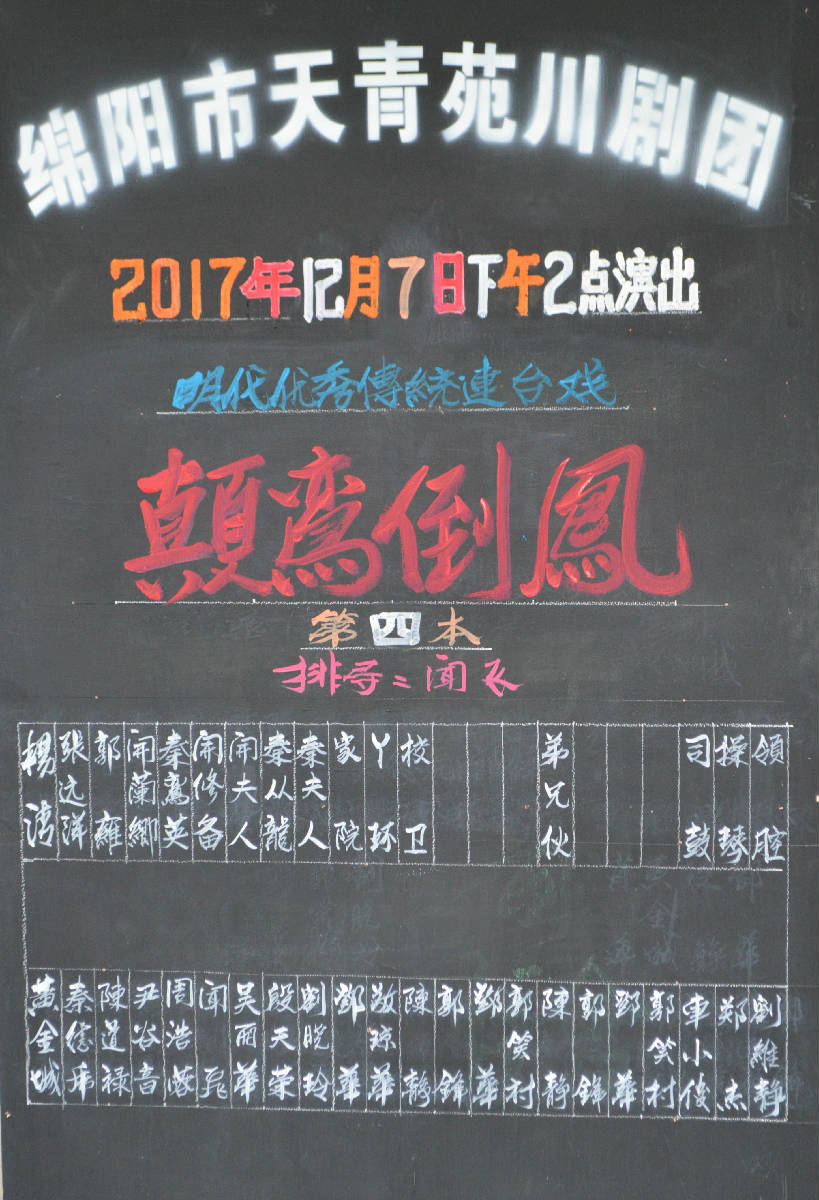 绵阳市天青苑川剧团
2017年12月7日下午2点演出
明代优秀傳統連台戏
顛鸾倒鳳
第四本
排导：闻飞
楊清
张远洋
郭雍
闻蘭卿
秦鸞英
闻修备
闻夫人
秦从龍
秦夫人
家院
丫环
校卫
弟兄伙
司鼓
操琴
領腔
黄金城
秦德沛
陳道禄
尹谷音
周浩蓉
闻飞
吴丽華
殷天荣
劉晓玲
鄧華
敬琼華
陳静
郭錦
鄧華
郭笑村
陳静
郭錦
鄧華
郭笑村
車小俊
郑杰
劉維静